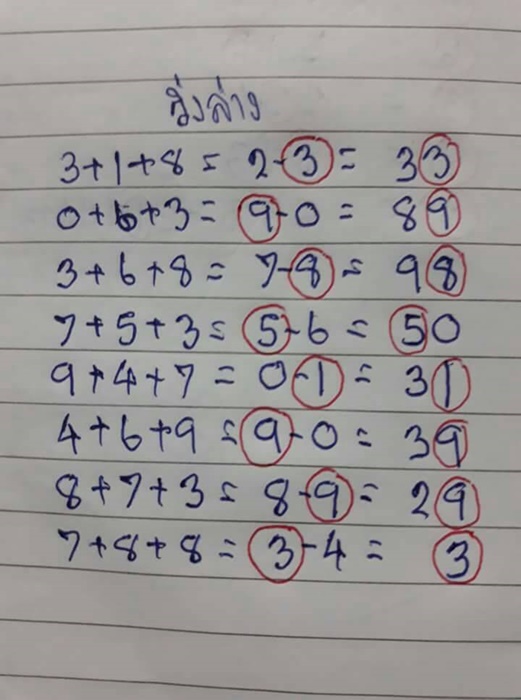 วิ่งล่าง
3+1+8 = 2-3 = 33
0+6+3 = 9-0 = 89
3+6+8 = 7-8 = 98
7+5+3 = 5-6 = 50
9+4+7 = 0-1 = 31
4+6+9 = 9-0 = 39
8+7+3 = 8-9 = 29
7+8+8 = 3-4 = 3